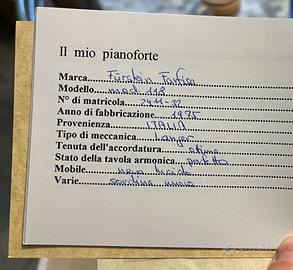 Il mio pianoforte
Marca........Fürstein Farfisa
Modello......mod. 118
N° di matricola......2411-92
Anno di fabbricazione...1975
Provenienza........ITALIA
Tipo di meccanica......Langer
Tenuta dell'accordatura......ottima
Stato della tavola armonica...perfetto
Mobile........nero lucido
Varie........sordina nuova